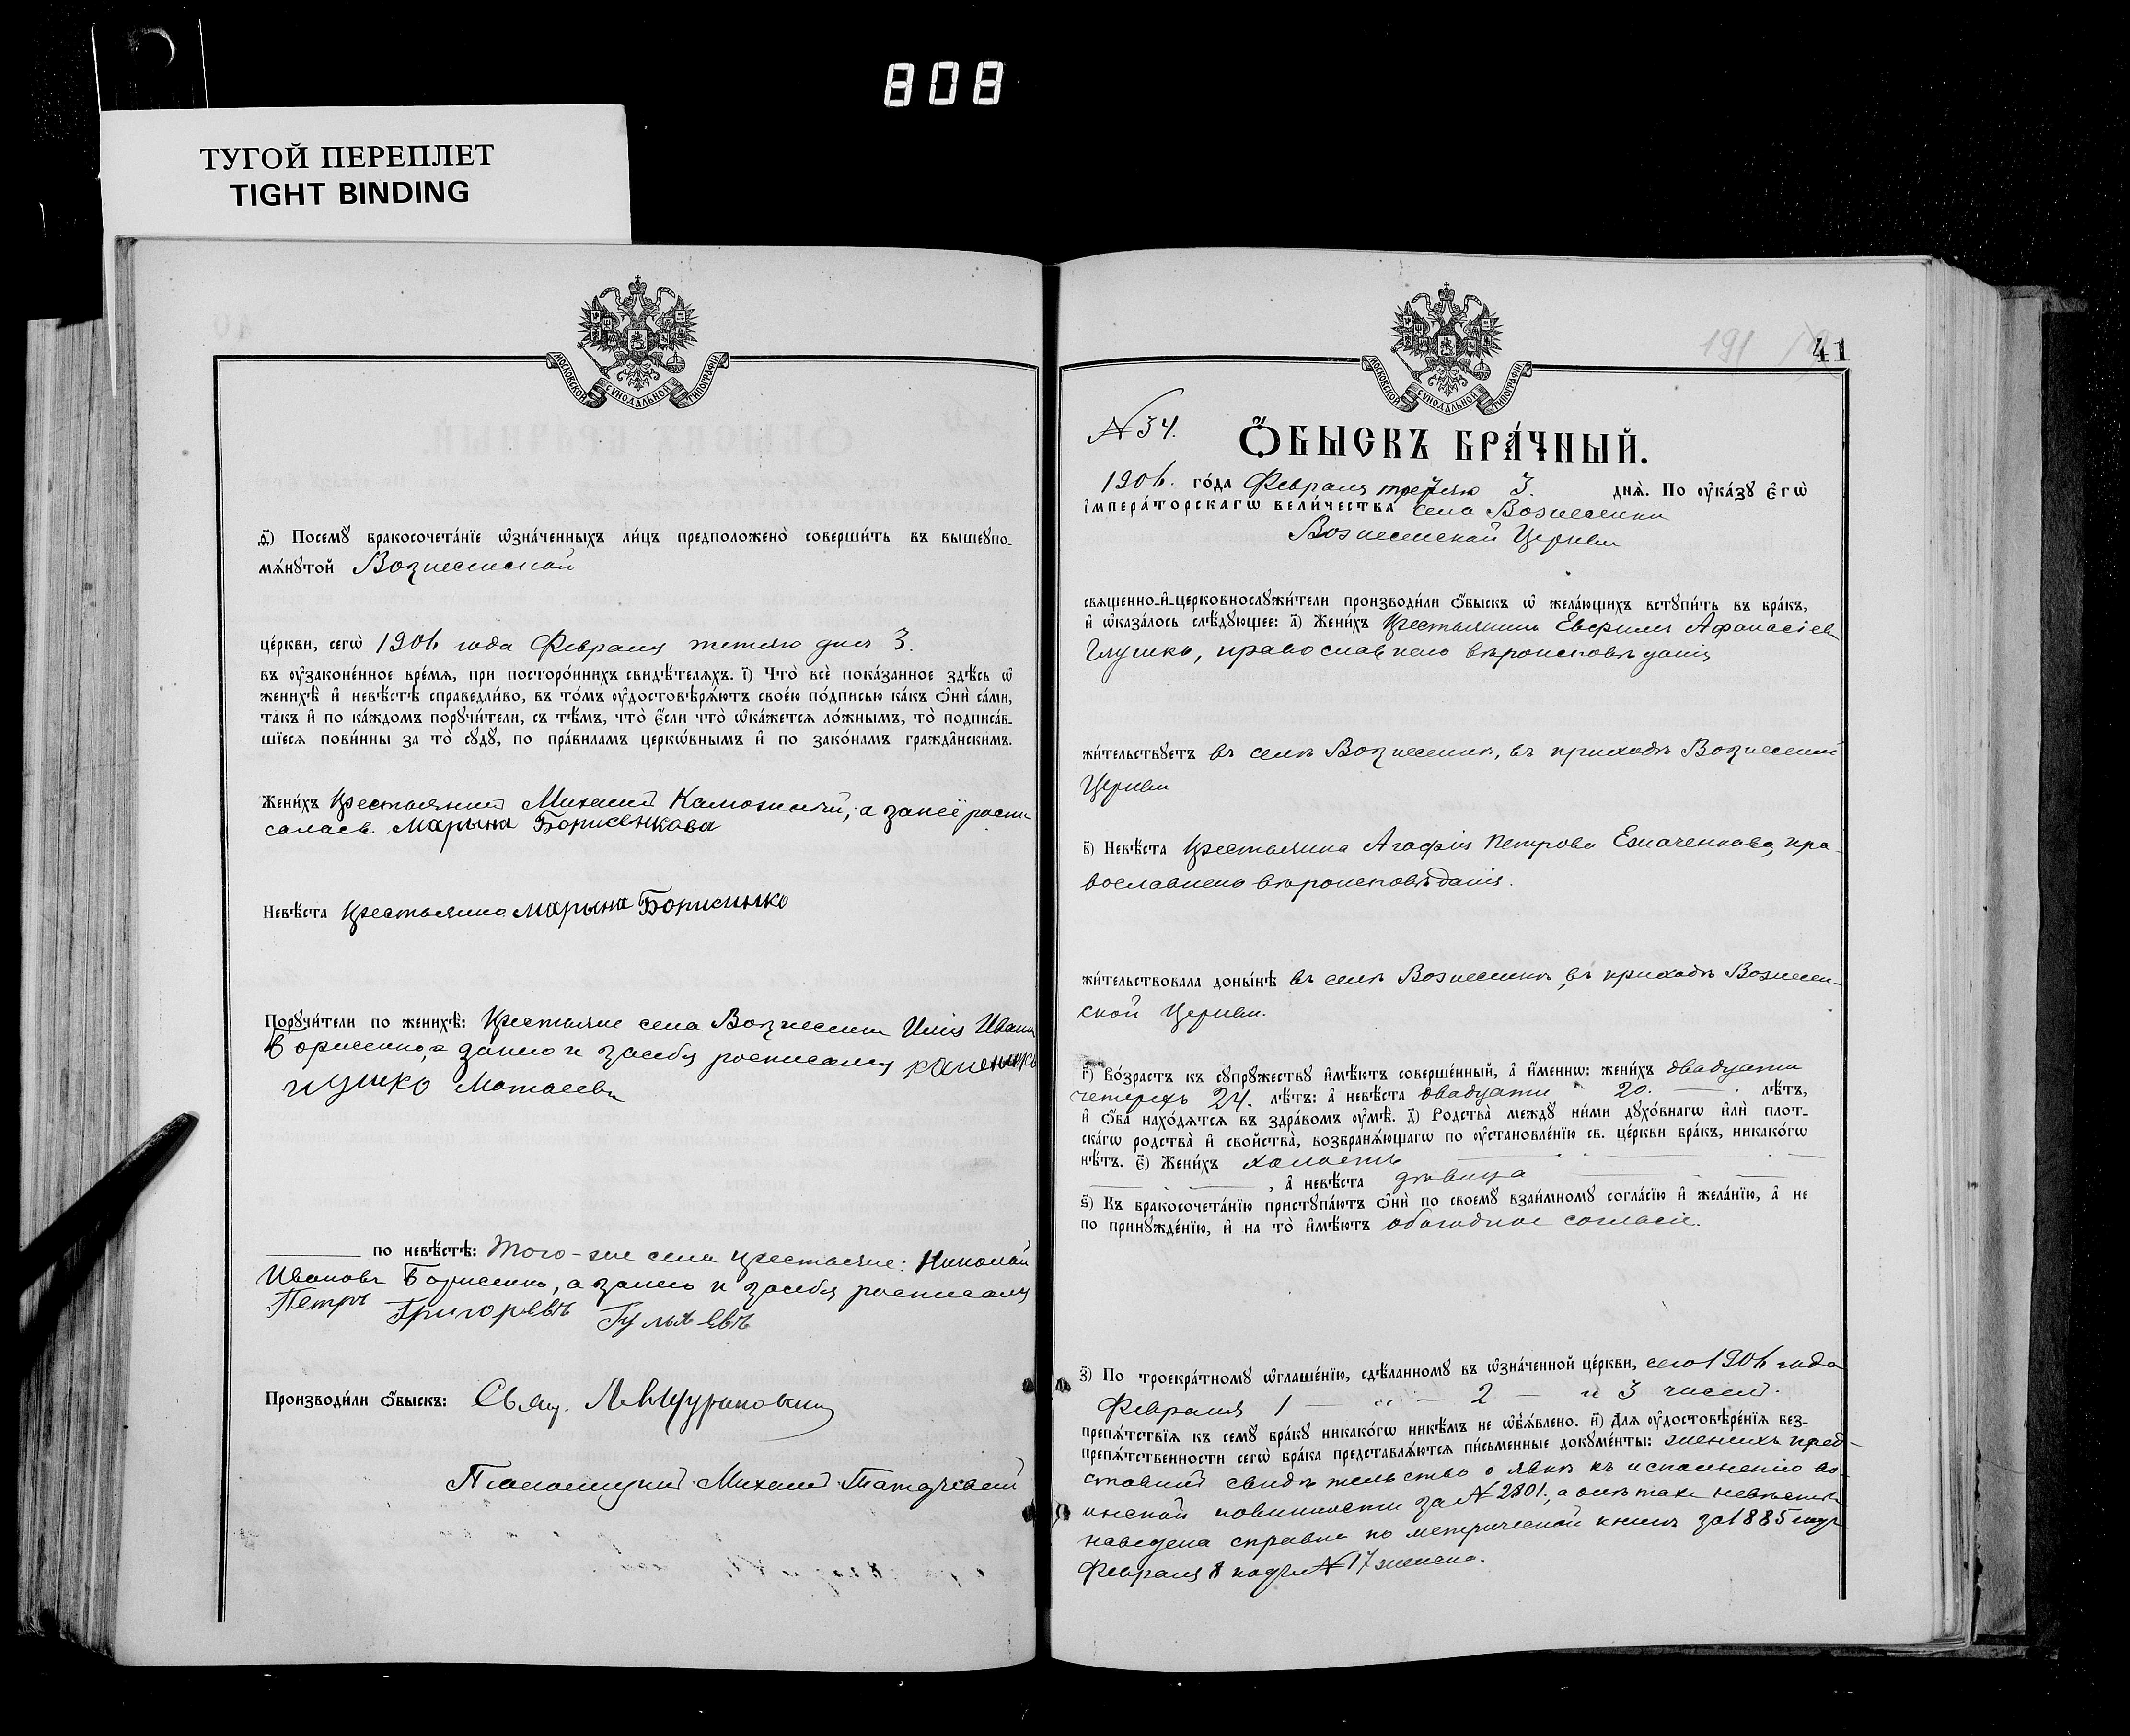 808
ТУГОЙ ПЕРЕПЛЕТ
TIGHT BINDING
МОСКОВСКОЙ СѴНОДАЛЬНОЙ ТИПОГРАФІИ
ѳ҃) Посемꙋ̀ бракосочета́нїе ѡ҆зна́ченныхъ ли́цъ предположено̀ соверши́ть въ вышеꙋпо-
мѧ́нꙋтой Вознесенской
це́ркви, сегѡ̀ 1906 года Февраля третяго дня 3.
въ ᲂу҆зако́ненное вре́мѧ, при посторо́ннихъ свидѣ́телѧхъ. і҃) Что̀ всѐ пока́занное здѣ́сь ѡ҆
женихѣ̀ и҆ невѣ́стѣ справедли́во, въ то́мъ ᲂу҆достовѣрѧ́ютъ свое́ю по́дписью ка́къ ѻ҆нѝ са́ми,
та́къ и҆ по ка́ждомъ порꙋчи́тели, съ тѣ́мъ, что̀ є҆́сли что̀ ѡ҆ка́жетсѧ ло́жнымъ, то̀ подписа́в-
шїесѧ пови́нны за то̀ сꙋдꙋ̀, по пра́виламъ церкѡ́внымъ и҆ по зако́намъ гражда̂нскимъ.
Жени́хъ крестьянинъ Михаилъ Калюжный, а за неё роспи-
салась Марына Борисѣнкова
Невѣ́ста крестьянка Марына Борисинко
Порꙋчи́тели по женихѣ̀: крестьяне села Вознесенки Илія Ивановъ
Борисенко, а занего и засебя росписался
глушко Матвеевъ
по невѣ́стѣ: Того-же села крестьяне: Николай
Ивановъ Борисенко, а занего и засебя росписался
Петръ Григорьевъ
Производи́ли ѻ҆́быскъ: Свящ.
Псаломщикъ Михаилъ
191
41
№ 34.
Ѻ҆́БЫСКЪ БРА́ЧНЫЙ.
1906. го́да Февраля третяго 3. днѧ̀. По ᲂу҆ка́зꙋ є҆гѡ̀
і҆мпера́торскагѡ вели́чества села Вознесенки
Вознесенской Церкви
свѧще́нно-и҆-церковнослꙋжи́тели производи́ли ѻ҆́быскъ ѡ҆ жела́ющихъ встꙋпи́ть въ бра́къ,
и҆ ѡ҆каза́лось слѣ́дꙋющее: а҃) Жени́хъ крестьянинъ Евфимъ Афанасіевъ
Глушко, православнаго вѣроисповѣданія
жи́тельствꙋетъ въ селѣ Вознесенкѣ, въ приходѣ Вознесенской
Церкви
в҃) Невѣ́ста крестьянка Агафія Петрова православнаго
вѣроисповѣданія.
жи́тельствовала доны́нѣ въ селѣ Вознесенкѣ, въ приходѣ Вознесен-
ской Церкви.
г҃) Во́зрастъ къ сꙋпрꙋ́жествꙋ и҆мѣ́ютъ соверше́нный, а҆ и҆́меннѡ: жени́хъ двадцати
четырехъ 24. лѣ́тъ: а҆ невѣ́ста двадцати 20. лѣ́тъ,
и҆ ѻ҆́ба нахо́дѧтсѧ въ здра́вомъ ᲂу҆мѣ̀. д҃) Родства̀ междꙋ ни́ми дꙋхо́внагѡ и҆лѝ плот-
ска́гѡ родства̀ и҆ свойства̀, возбранѧ́ющагѡ по ᲂу҆становле́нїю св. це́ркви бра́къ, никако́гѡ
нѣ́тъ. є҃) Жени́хъ холостъ
, а҆ невѣ́ста дѣвица
ѕ҃) Къ бракосочета́нїю пристꙋпа́ютъ ѻ҆нѝ по своемꙋ̀ взаи́мномꙋ согла́сїю и҆ жела́нїю, а҆ не
по принꙋжде́нїю, и҆ на то̀ и҆мѣ́ютъ обоюдное согласіе.
з҃) По троекра́тномꙋ ѡ҆глаше́нїю, сдѣ́ланномꙋ въ ѡ҆зна́ченной це́ркви, сего 1906 года
Февраля 1 — 2 — и 3 чиселъ.
препѧ́тствїѧ къ семꙋ̀ бра́кꙋ никако́гѡ никѣ́мъ не ѡ҆б̾ѧ́влено. и҃) Длѧ̀ ᲂу҆достовѣре́нїѧ без-
препѧ́тственности сегѡ̀ бра́ка представлѧ́ютсѧ пи́сьменные докꙋме́нты: женихъ пред-
ставилъ свидѣтельство о явкѣ къ исполненію во-
инской повинности за № 2801., а о лѣтахъ невѣсты
наведена справка по метрической книгѣ за 1885 годъ
Февраля 8 подъ № 17 женска.